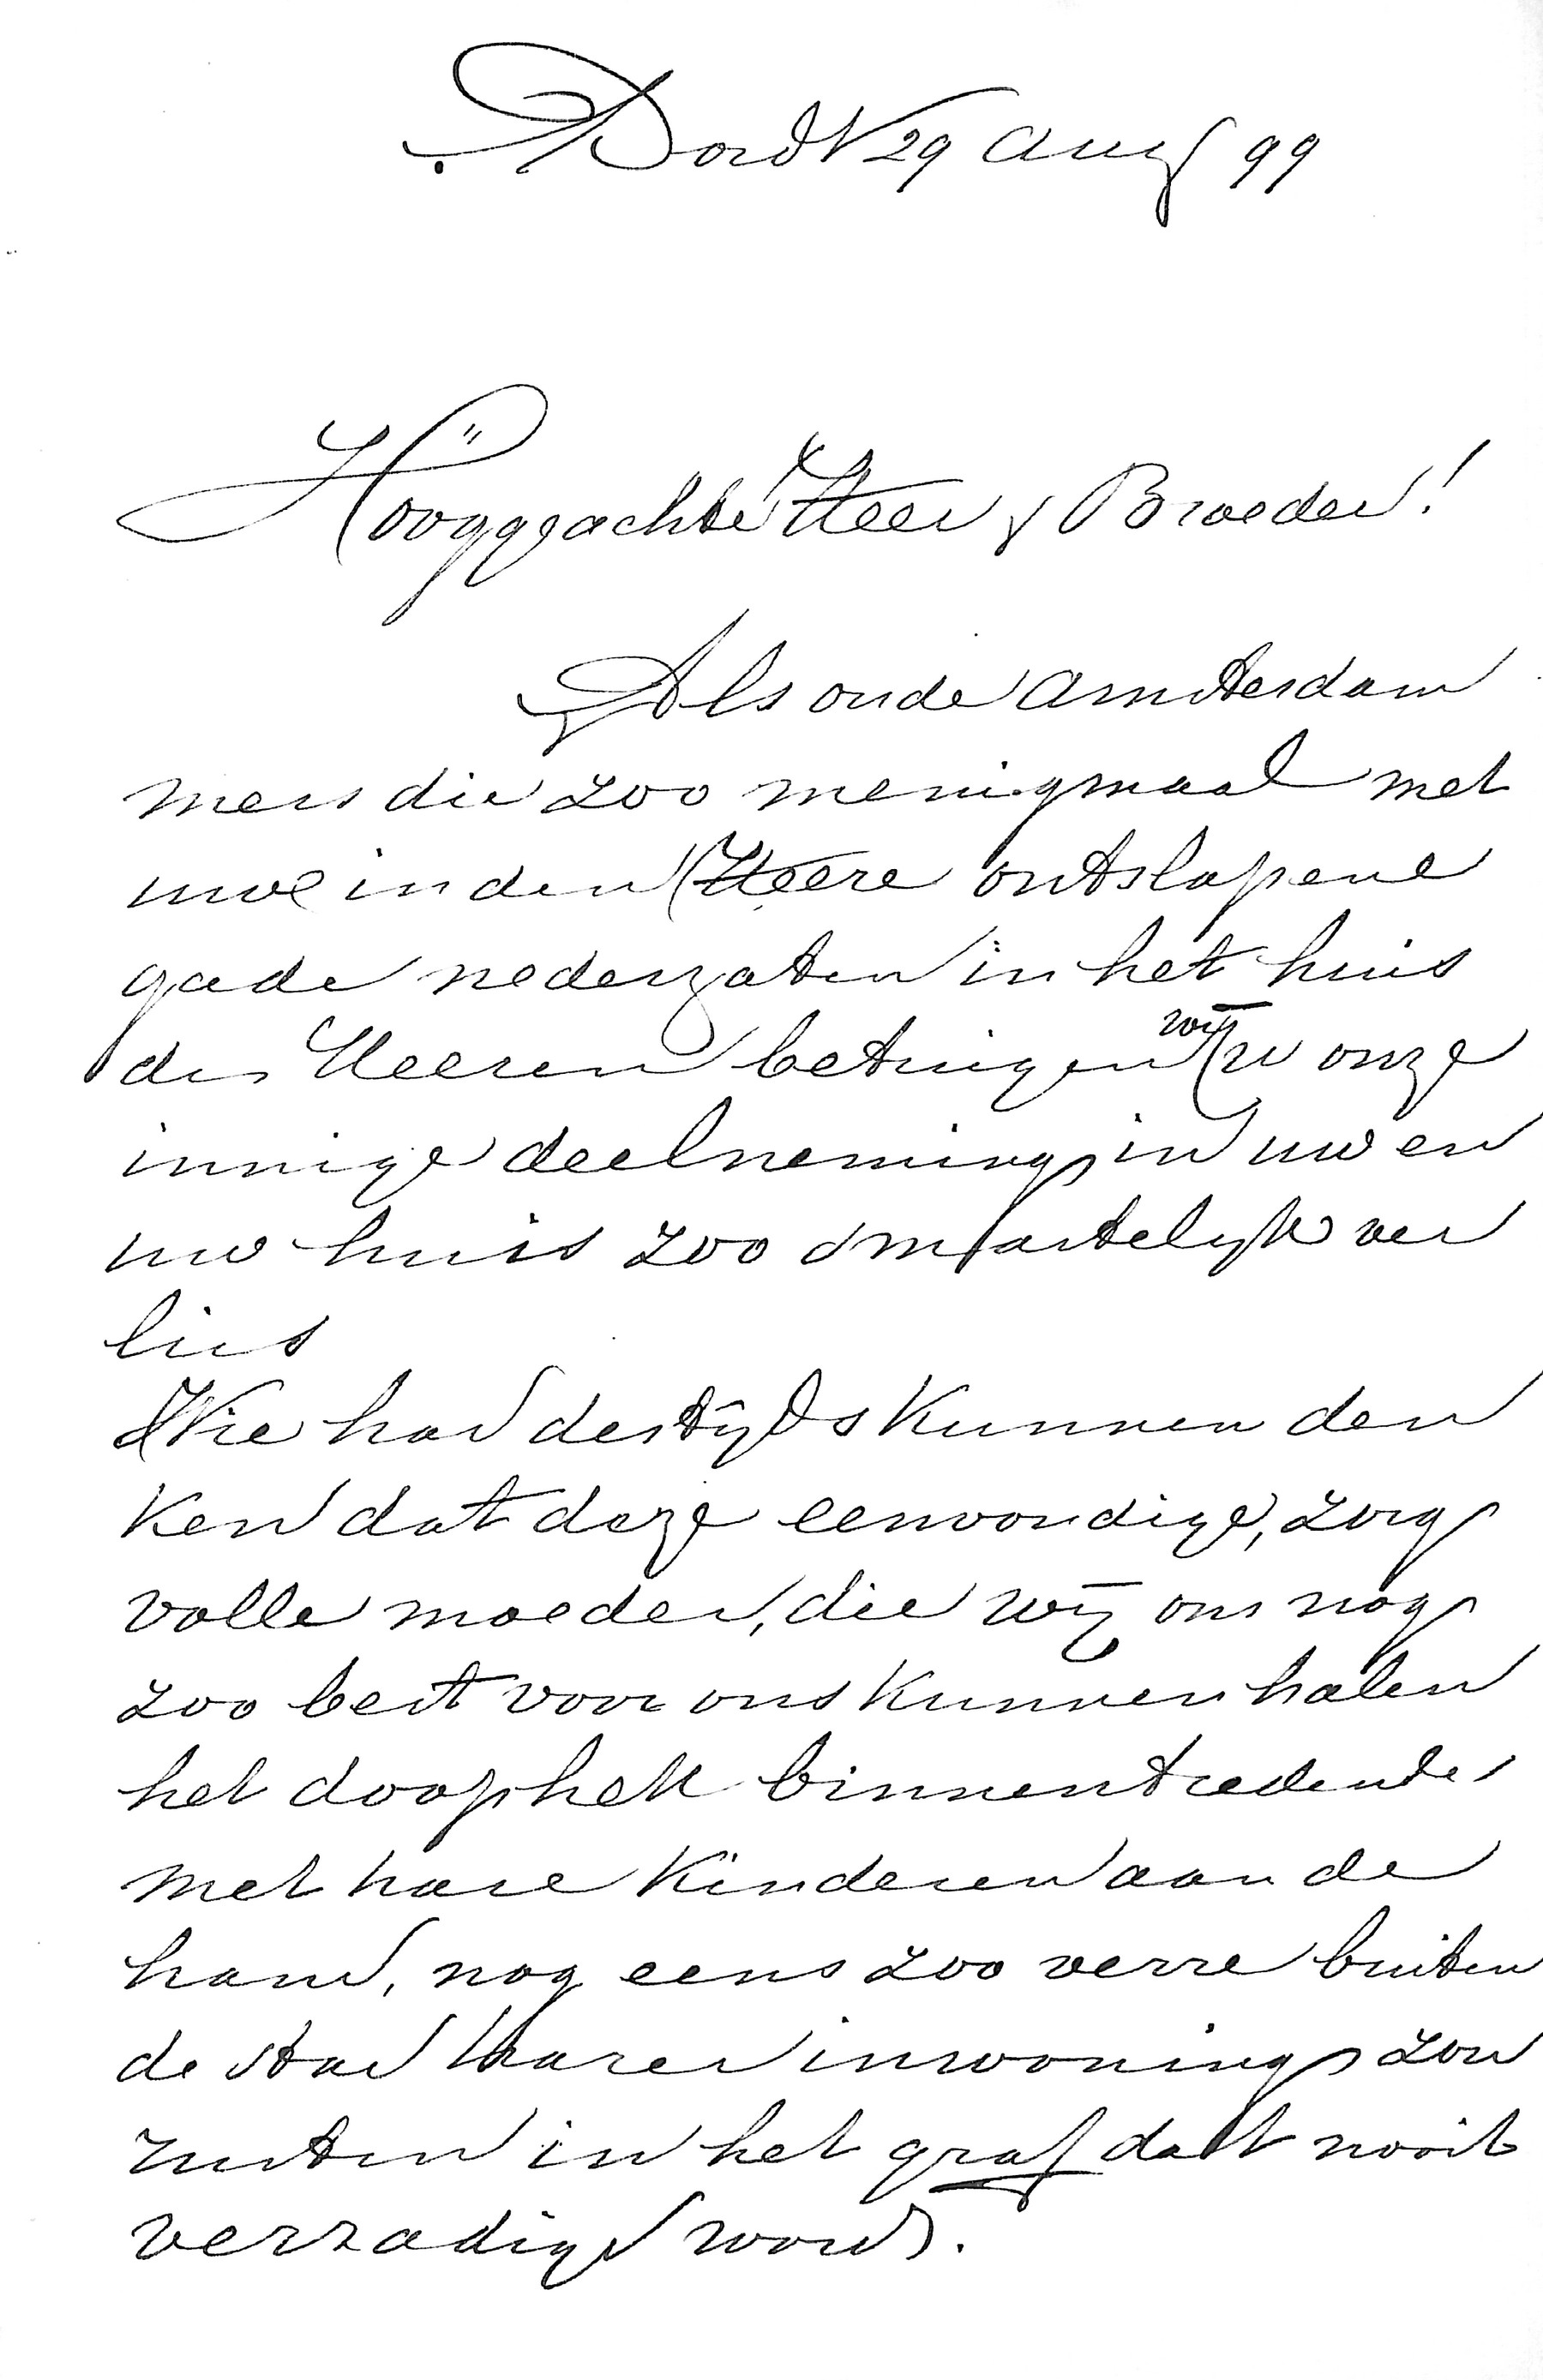 Dordt 29 Aug 99
Hooggeachte Heer & Broeder!
Als oude Amsterdam
mers die zoo menigmaal met
uwe in den Heere ontslapene
gade nederzaten in het huis
des Heeren betuigen wij u onze
innige deelneming in uw en
uw huis zoo smartelijk ver
lies
Wie had destijds kunnen den
ken dat deze eenvoudige, zorg
volle moeder, die wij ons nog
zoo best voor ons kunnen halen
het doophek binnentredende
met hare kinderen aan de
hand, nog eens zoo verre buiten
de stad harer inwoning zou
rusten in het graf dat nooit
verzadigd word.